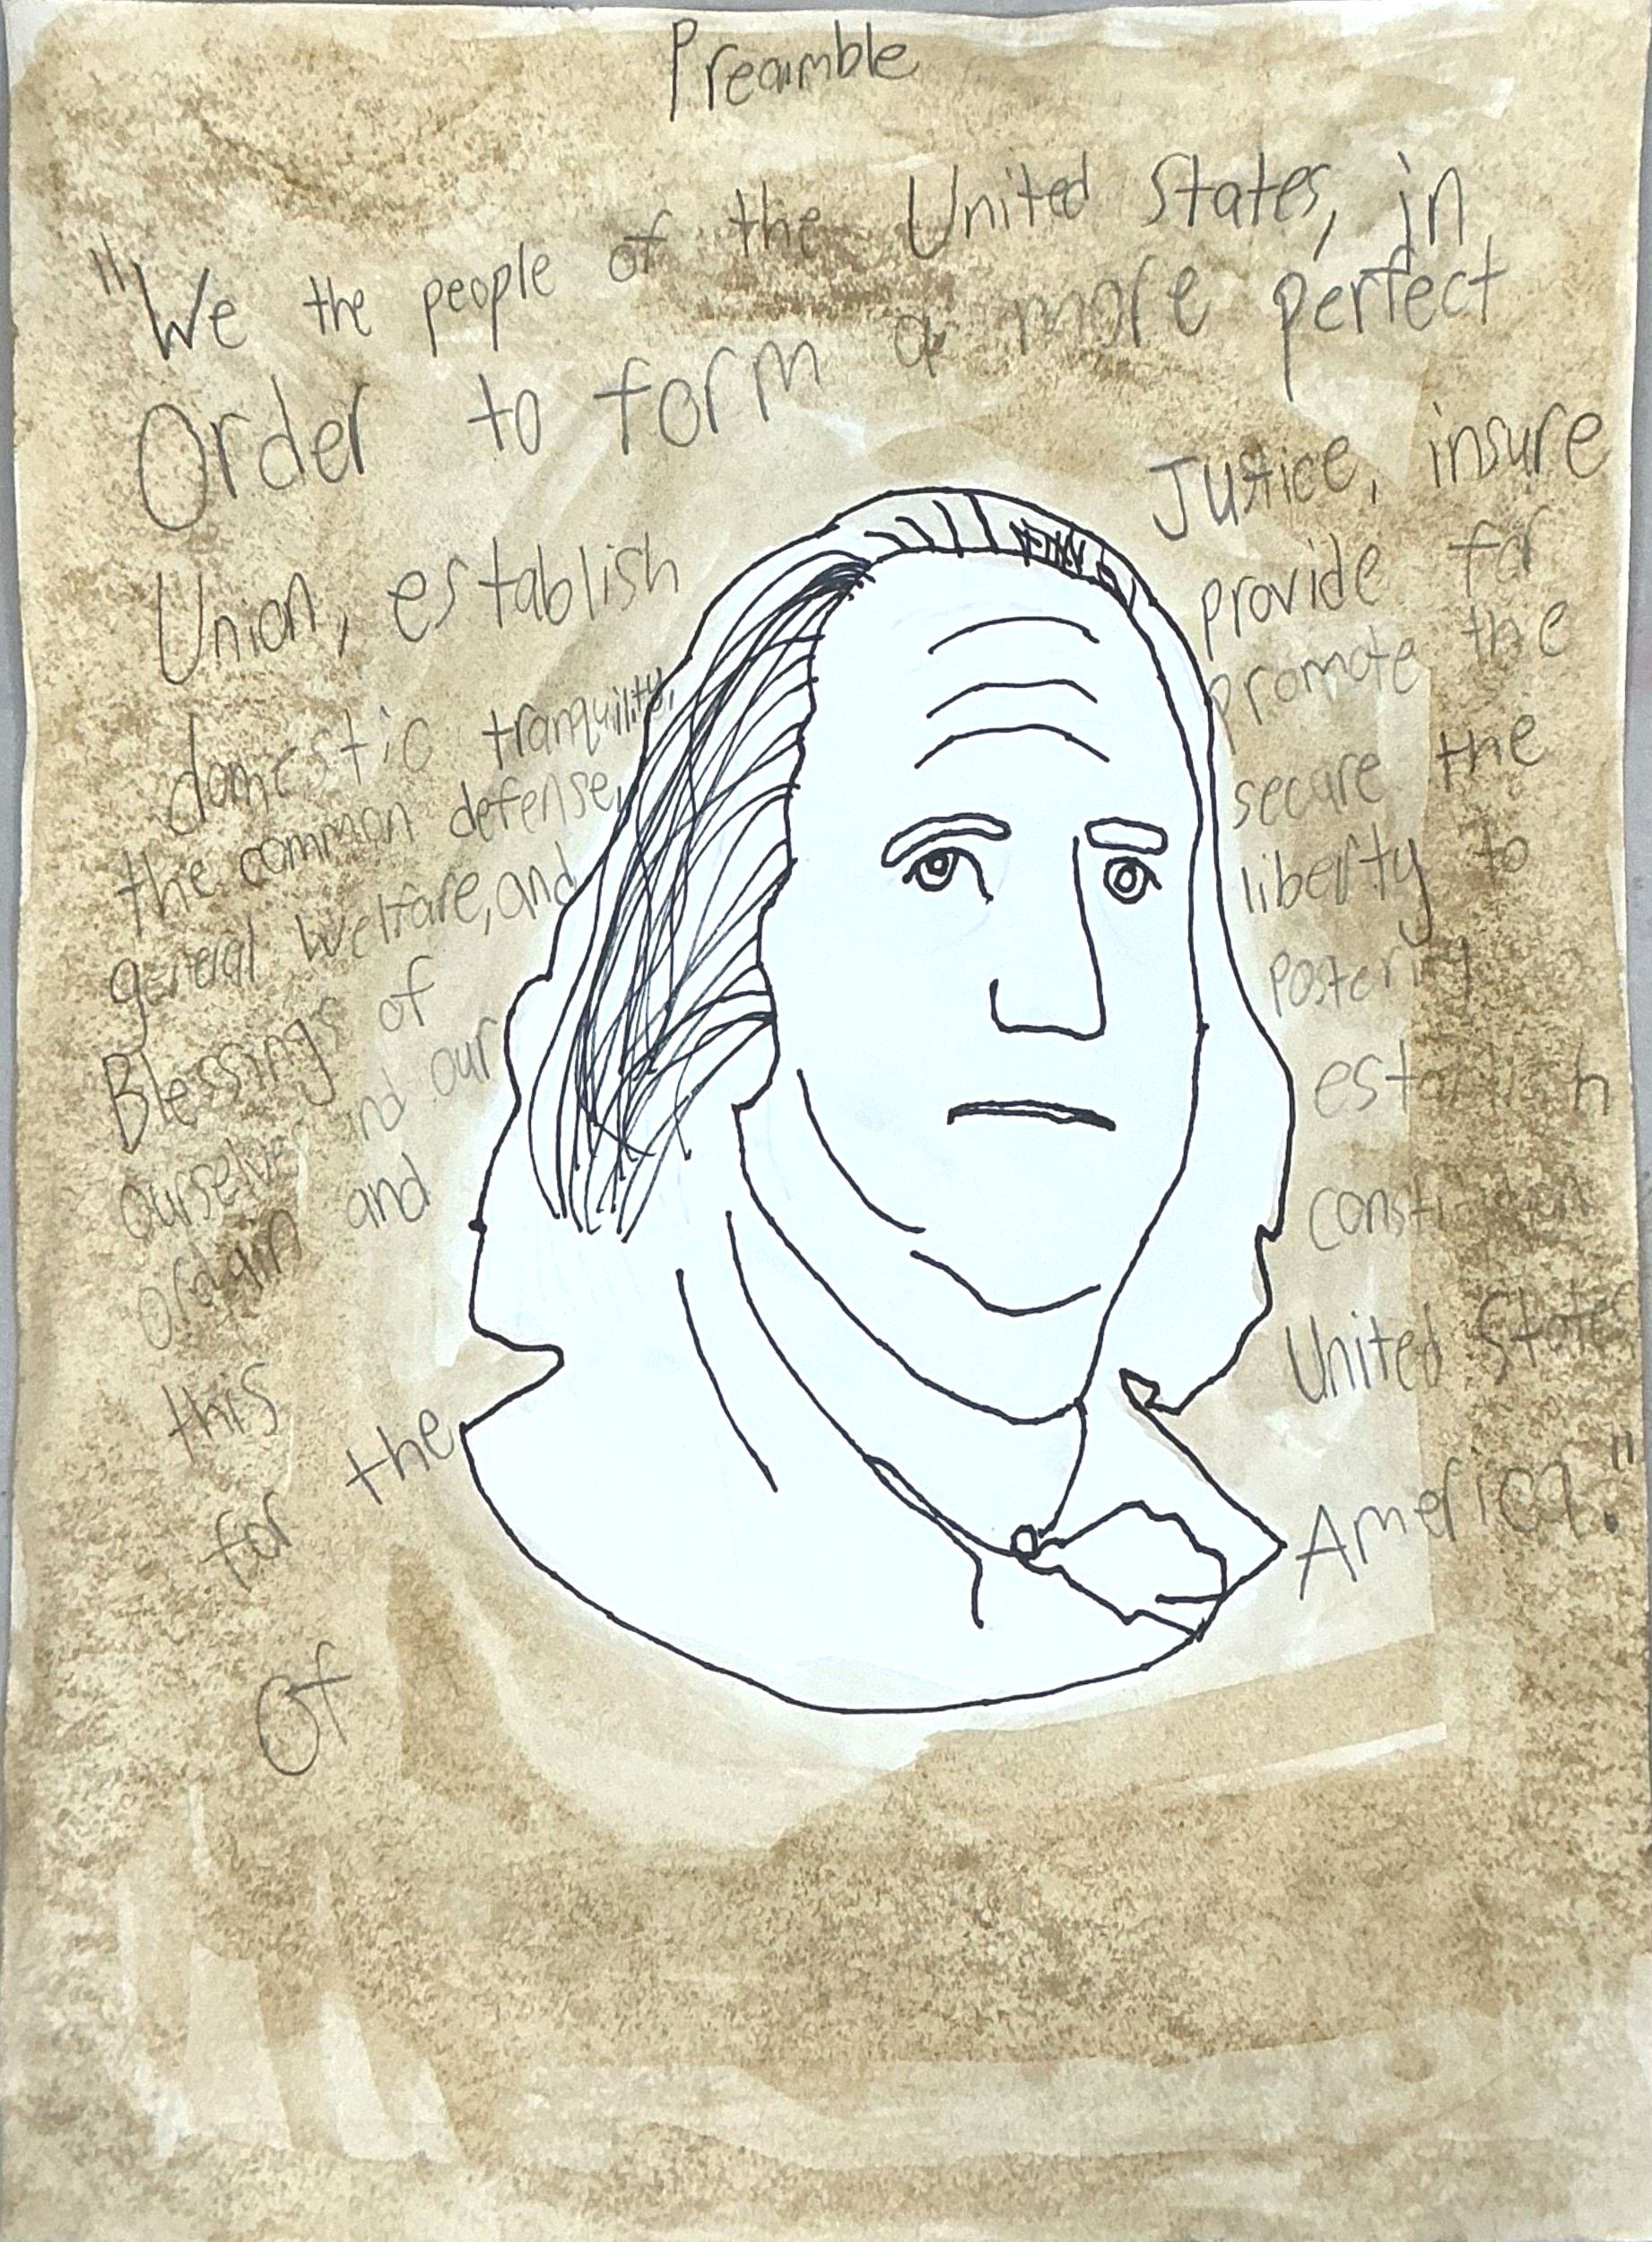 Preamble
"We the people of the United States, in
Order to form a more perfect
Union, establish Justice, insure
domestic tranquility, provide for
the common defense, promote the
general welfare, and secure the
Blessings of liberty to
ourselves and our Posterity
ordain and establish
this constitution
for the United States
Of America."